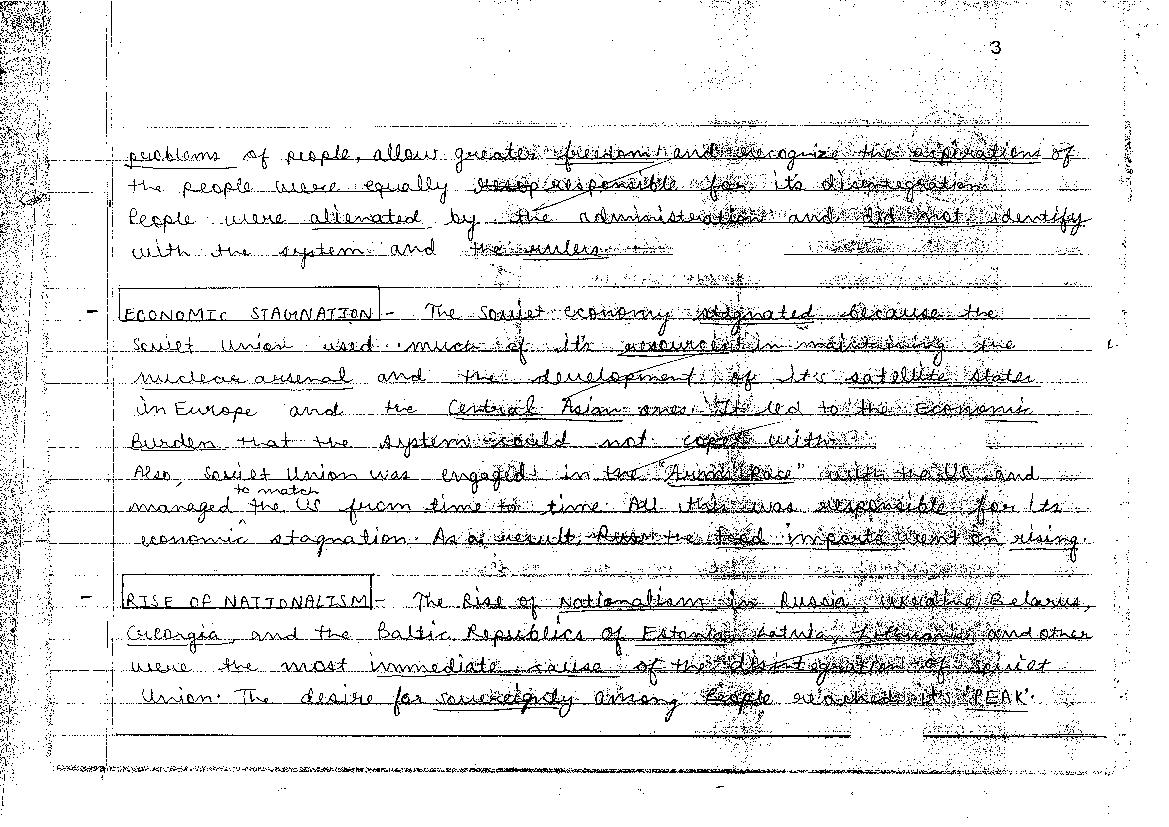 3
problems of people, allow greater freedom and recognize the aspirations of
the people were equally responsible for its disintegration
People were alienated by the administration and did not identify
with the system and the rulers
- ECONOMIC STAGNATION - The soviet economy stagnated because the
Soviet Union used much of it's resources in maintaining the
nuclear arsenal and the development of its satellite states
in Europe and the Central Asian ones. It led to the Economic
Burden that the system could not cope with.
Also, Soviet Union was engaged in the "Arms Race" with the US and
managed to match the US from time to time. All this was responsible for its
economic stagnation. As a result, the food imports went on rising.
- RISE OF NATIONALISM - The Rise of Nationalism in Russia, Ukraine, Belarus,
Georgia, and the Baltic Republics of Estonia, Latvia, Lithuania, and other
were the most immediate cause of the disintegration of soviet
Union. The desire for sovereignty among People reached its 'PEAK'.